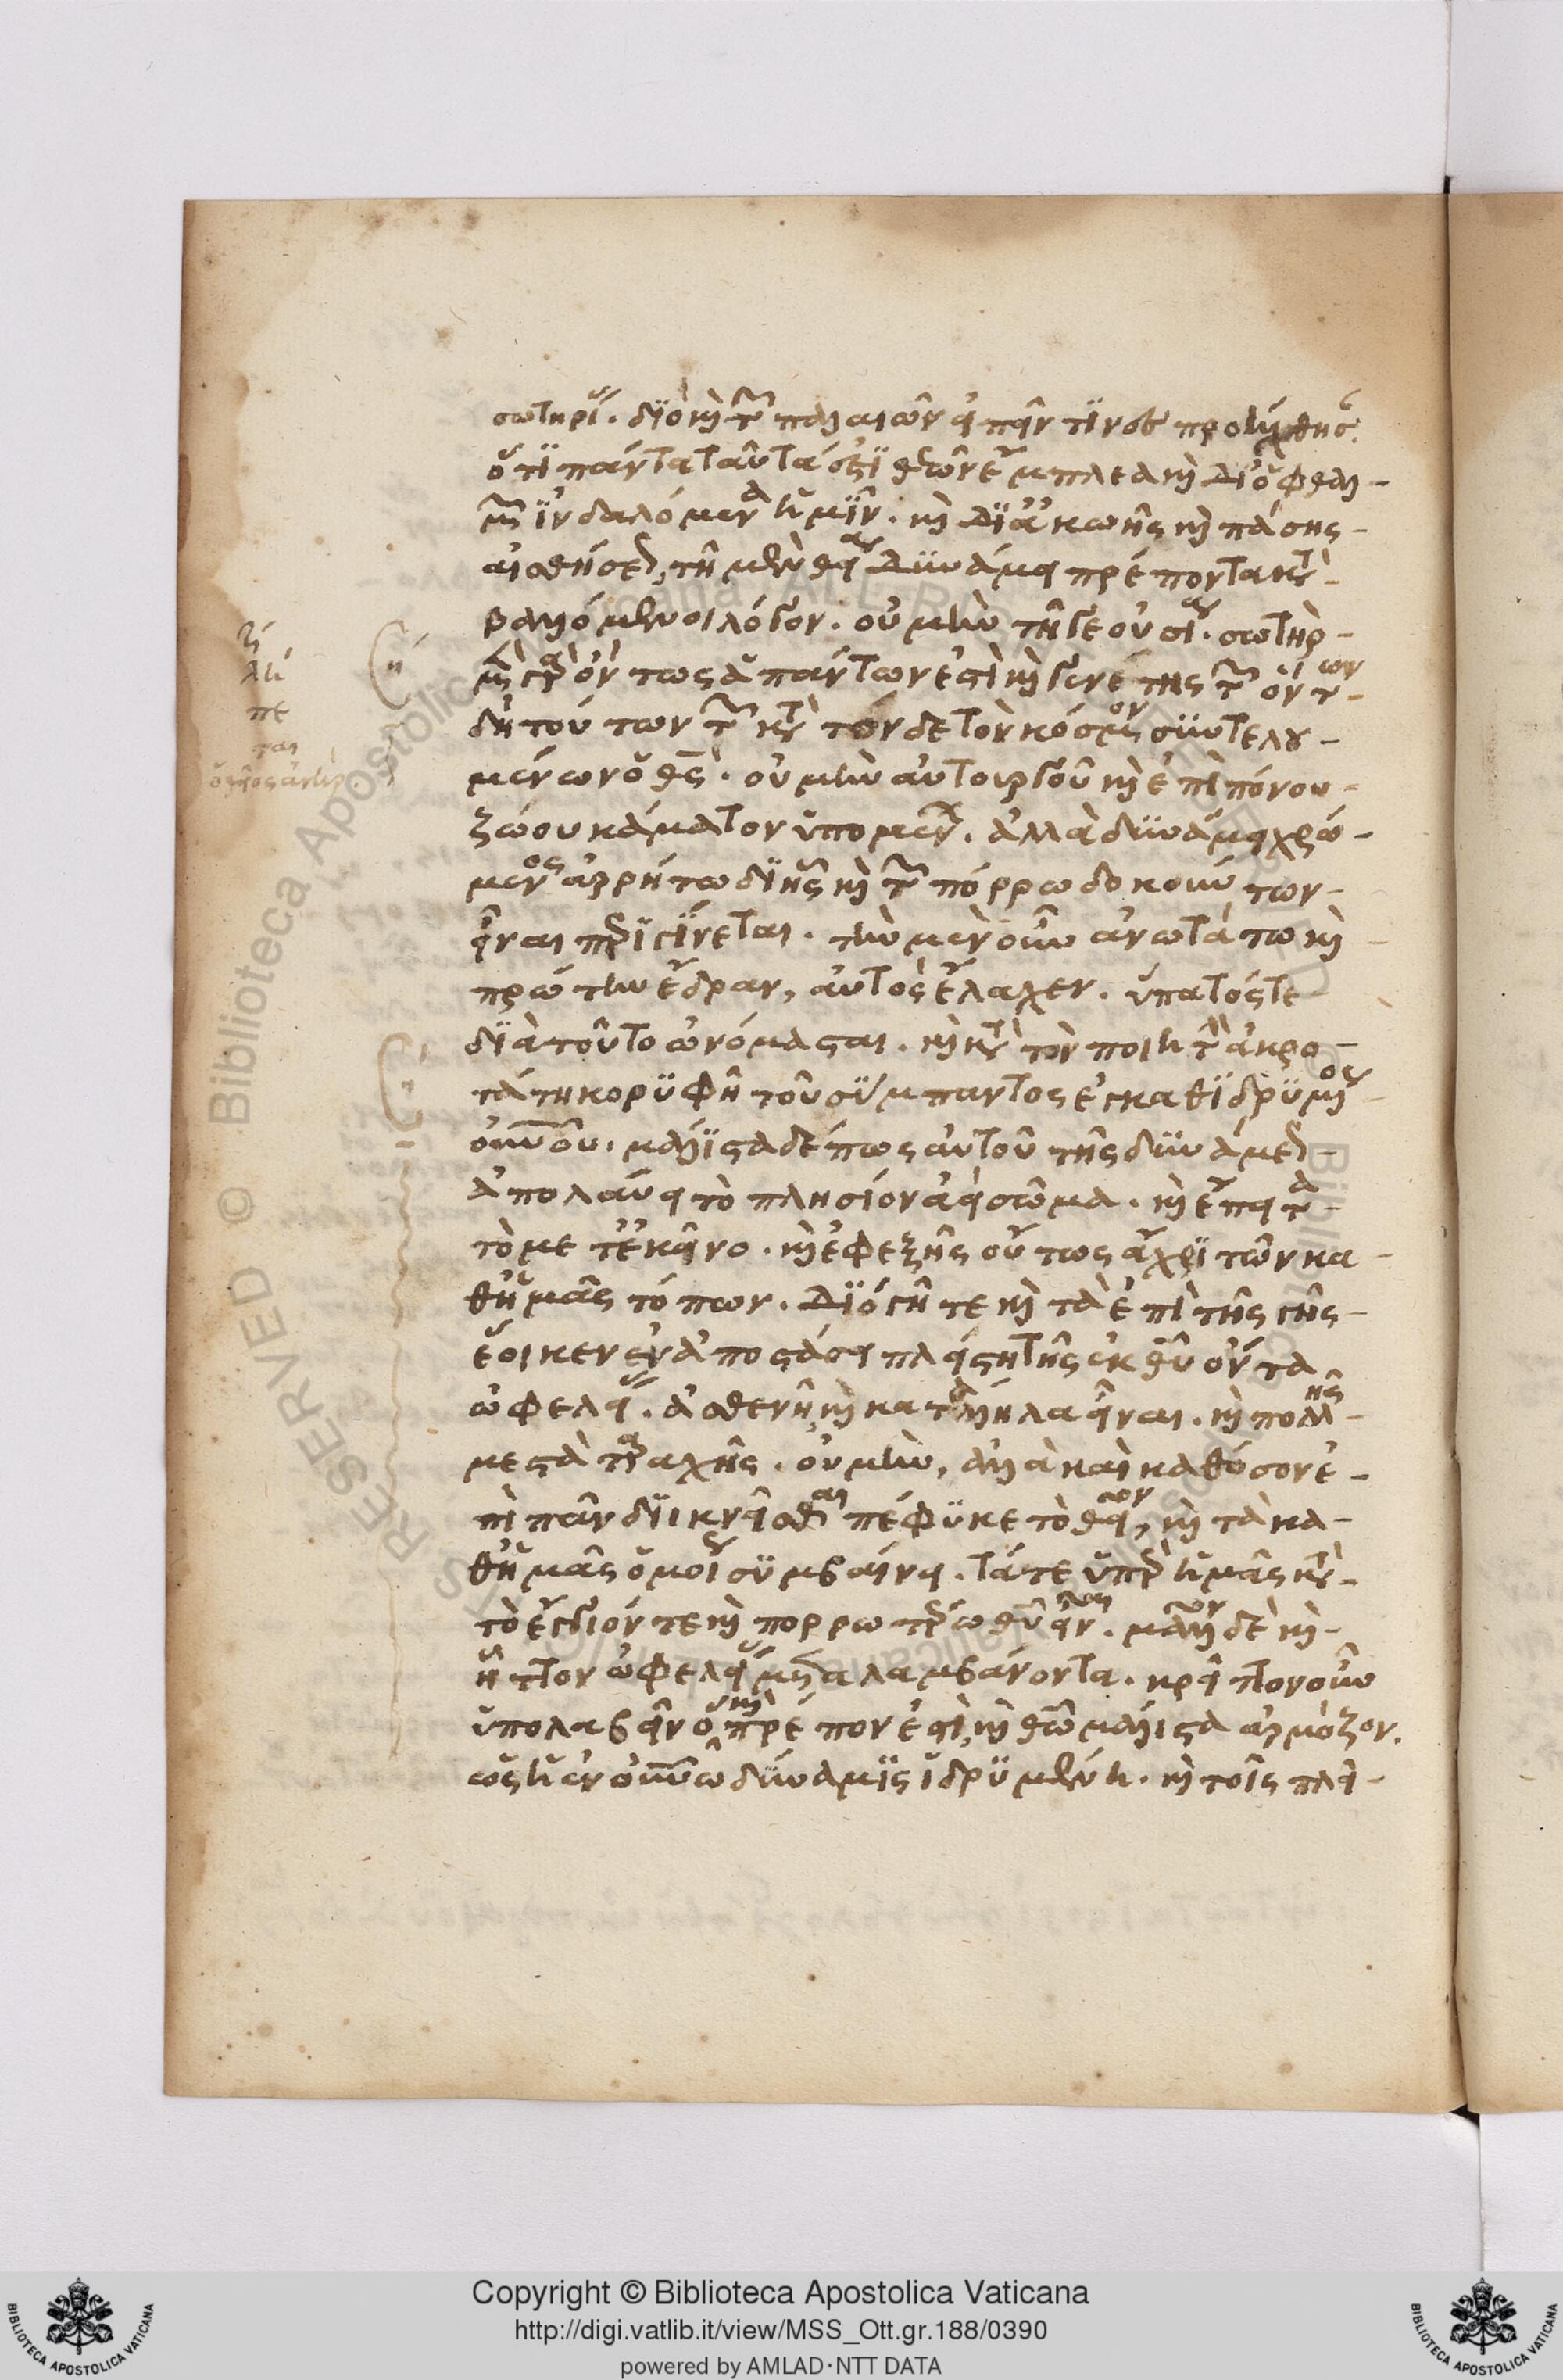 σωτηρίας. διὸ καὶ τῶν παλαιῶν εἰπεῖν τινὲς προήχθησαν
ὅτι πάντα ταῦτά ἐστι θεῶν ἔμπλεα καὶ δι' ὀφθαλ-
μῶν ἰνδαλόμενα ἡμῖν. καὶ δι' ἀκοῆς καὶ πάσης
αἰσθήσεως, τῇ μὲν θείᾳ δυνάμει πρέποντα κατα-
βαλλόμενοι λόγον. οὐ μὴν τῇ γε οὐσίᾳ. σωτὴρ
μὲν γὰρ ὄντως ἁπάντων ἐστὶ καὶ γενέτης τῶν ὁτιων
δήποτε τῶν κατὰ τόνδε τὸν κόσμον συντελου-
μένων ὁ θεός. οὐ μὴν αὐτουργοῦ καὶ ἐπιπόνου
ζώου κάματον ὑπομένων. ἀλλὰ δυνάμει χρώ-
μενος ἀτρύτω δι' ἧς καὶ τῶν πόρρω δοκούντων
εἶναι περιγίνεται. τὴν μὲν οὖν ἀνωτάτω καὶ
πρώτην ἕδραν, αὐτὸς ἔλαχεν. ὕπατός τε
διὰ τοῦτο ὠνόμασται. καὶ κατὰ τὸν ποιητὴν ἀκρο-
τάτη κορυφῇ τοῦ σύμπαντος ἐγκαθιδρυμένος
οὐρανοῦ. μάλιστα δέ πως αὐτοῦ τῆς δυνάμεως
ἀπολαύει τὸ πλησίον ἀεὶ σῶμα. καὶ ἔπειτα
τὸ μετ' ἐκεῖνο. καὶ ἐφεξῆς οὕτως ἄχρι τῶν κα
θ' ἡμᾶς τόπων. διὸ γῆ τε καὶ τὰ ἐπὶ τῆς γῆς
ἔοικεν ἐν ἀποστάσει πλείστῃ τῆς ἐκ θεοῦ ὄντα
ὠφελείας. ἀσθενῆ καὶ κατάλληλα εἶναι. καὶ πολλῆς
μεστὰ ταραχῆς. οὐ μὴν, ἀλλὰ καὶ καθόσον ἐ-
πὶ πᾶν διικνεῖσθαι πέφυκε τὸ θεῖον, καὶ τὰ κα-
θ' ἡμᾶς ὁμοίως συμβαίνει. τά τε ὑπὲρ ἡμᾶς κατὰ
τὸ ἔγγιόν τε καὶ πορρωτέρω θεοῦ εἶναι. μᾶλλον δὲ καὶ
ἧττον ὠφελείας μεταλαμβάνοντα. κρεῖττον οὖν
ὑπολαβεῖν ὃ καὶ πρέπον ἐστὶ, καὶ θεῶ μάλιστα ἁρμόζον.
ὡς ἡ ἐν οὐρανῶ δύναμις ἱδρυμένη. καὶ τοῖς πλεῖ-
Copyright © Biblioteca Apostolica Vaticana
http://digi.vatlib.it/view/MSS_Ott.gr.188/0390
powered by AMLAD·NTT DATA